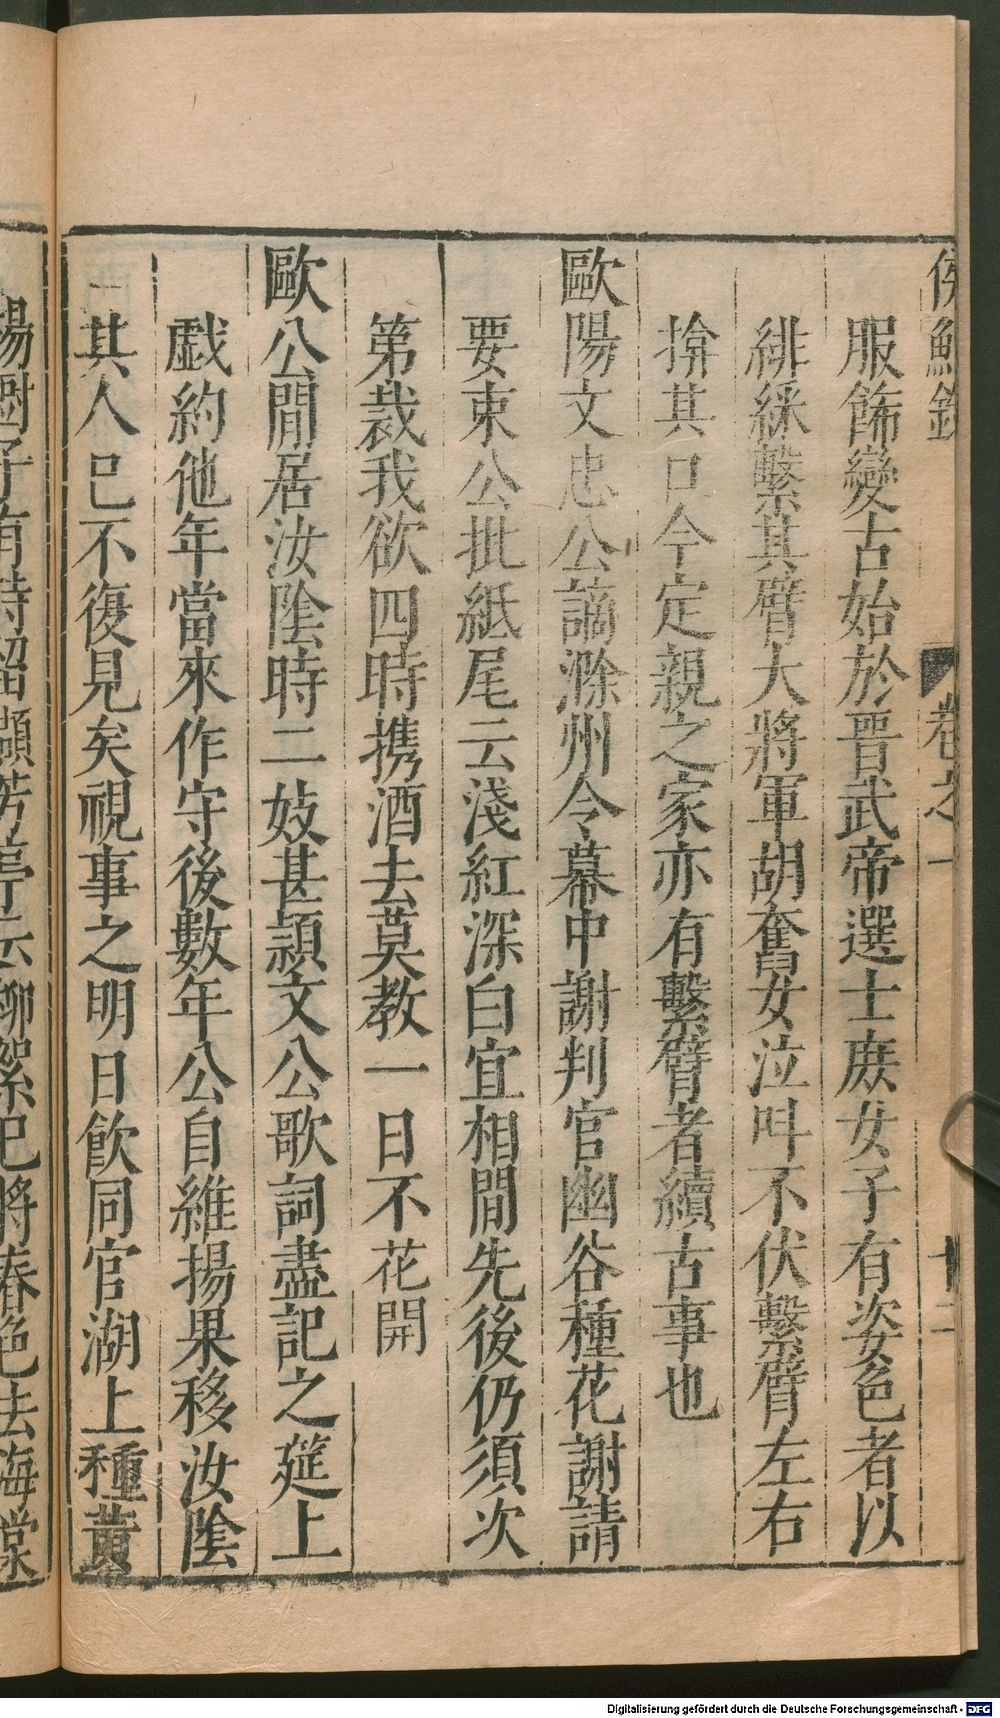 侯鯖錄 卷之一 十二
服飾變古始於晋武帝選士庶女子有姿色者以
緋綵繫其臂大將軍胡奮女泣呌不伏繫臂左右
揜其口今定親之家亦有繫臂者續古事也
歐陽文忠公謫滁州令幕中謝判官幽谷種花謝請
要束公批紙尾云淺紅深白宜相間先後仍須次
第裁我欲四時携酒去莫教一日不花開
歐公閒居汝陰時二妓甚頴文公歌詞盡記之筵上
戯約他年當來作守後數年公自維揚果移汝陰
其人已不復見矣視事之明日飲同官湖上種黃
楊樹子有詩留擷芳亭云柳絮已將春色去海棠
Digitalisierung gefördert durch die Deutsche Forschungsgemeinschaft - DFG